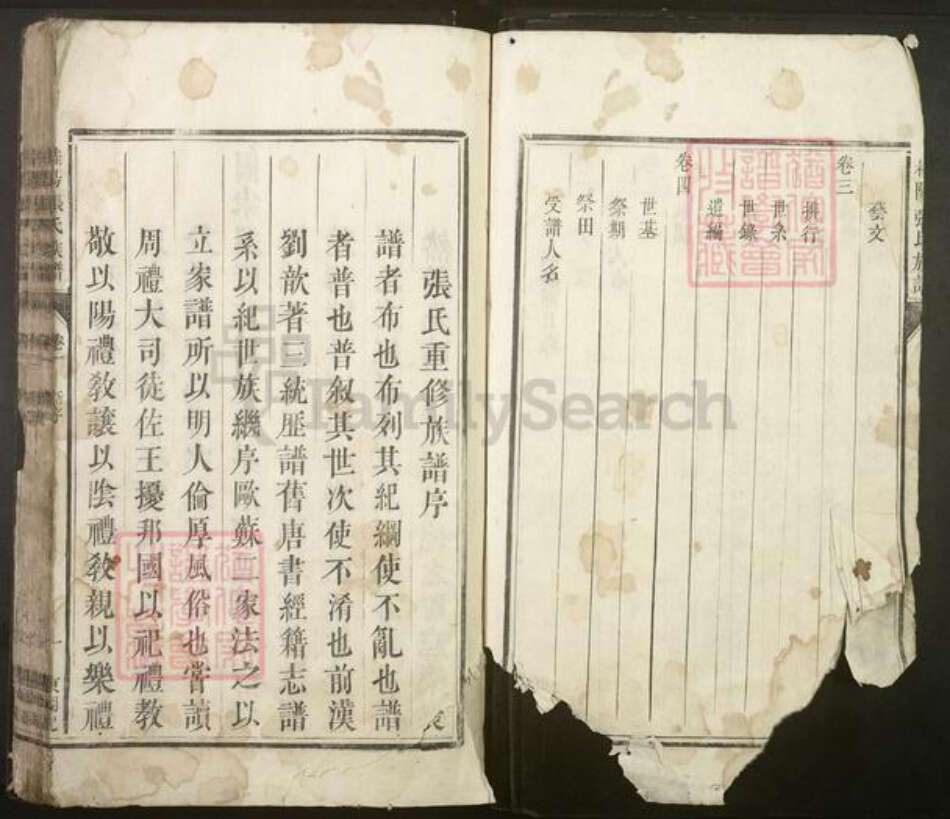 卷三
藝文
排行
世系
世錄
遺編
卷四
世基
祭期
祭田
受譜人名
張氏重修族譜序
譜者布也布列其紀綱使不亂也譜
者普也普叙其世次使不淆也前漢
劉歆著三統歷譜舊唐書經籍志譜
系以紀世族繼序歐蘇二家法之以
立家譜所以明人倫厚風俗也嘗讀
周禮大司徒佐王擾邦國以祀禮教
敬以陽禮敎讓以陰禮教親以樂禮
張氏族譜
FamilySearch